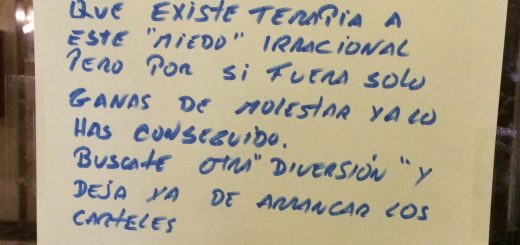 QUE EXISTE TERAPIA A
ESTE "MIEDO" IRRACIONAL
PERO POR SI FUERA SOLO
GANAS DE MOLESTAR YA LO
HAS CONSEGUIDO.
BUSCATE OTRA "DIVERSIÓN" Y
DEJA YA DE ARRANCAR LOS
CARTELES